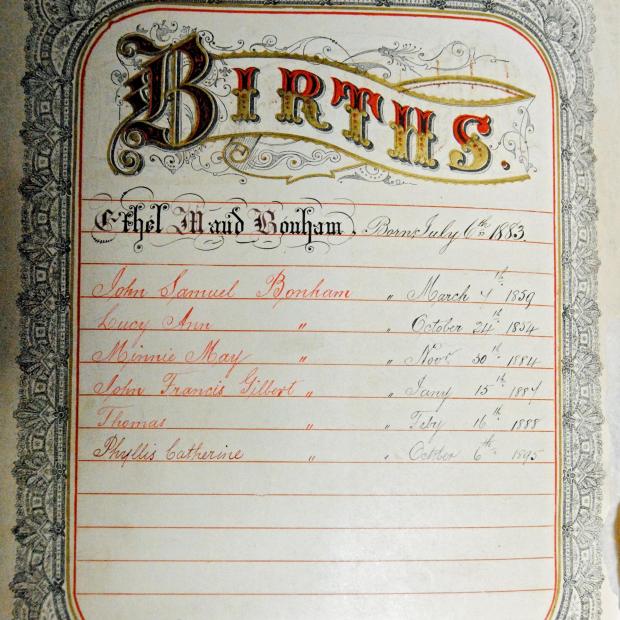 BIRTHS.
Ethel Maud Bonham. Born July 6th 1883.
John Samuel Bonham " March 7th 1859
Lucy Ann " " October 24th 1854
Minnie May " " Novr 30th 1884
John Francis Gilbert " " Jany 15th 1887
Thomas " " Feby 16th 1888
Phyllis Catherine " " October 6th 1895